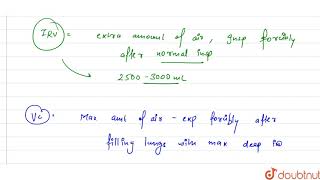 IRV = extra amount of air, insp forcibly
after normal insp
2500-3000 mL
Vc : Max amt of air - exp forcibly after
filling lungs with max deep
doubtnut